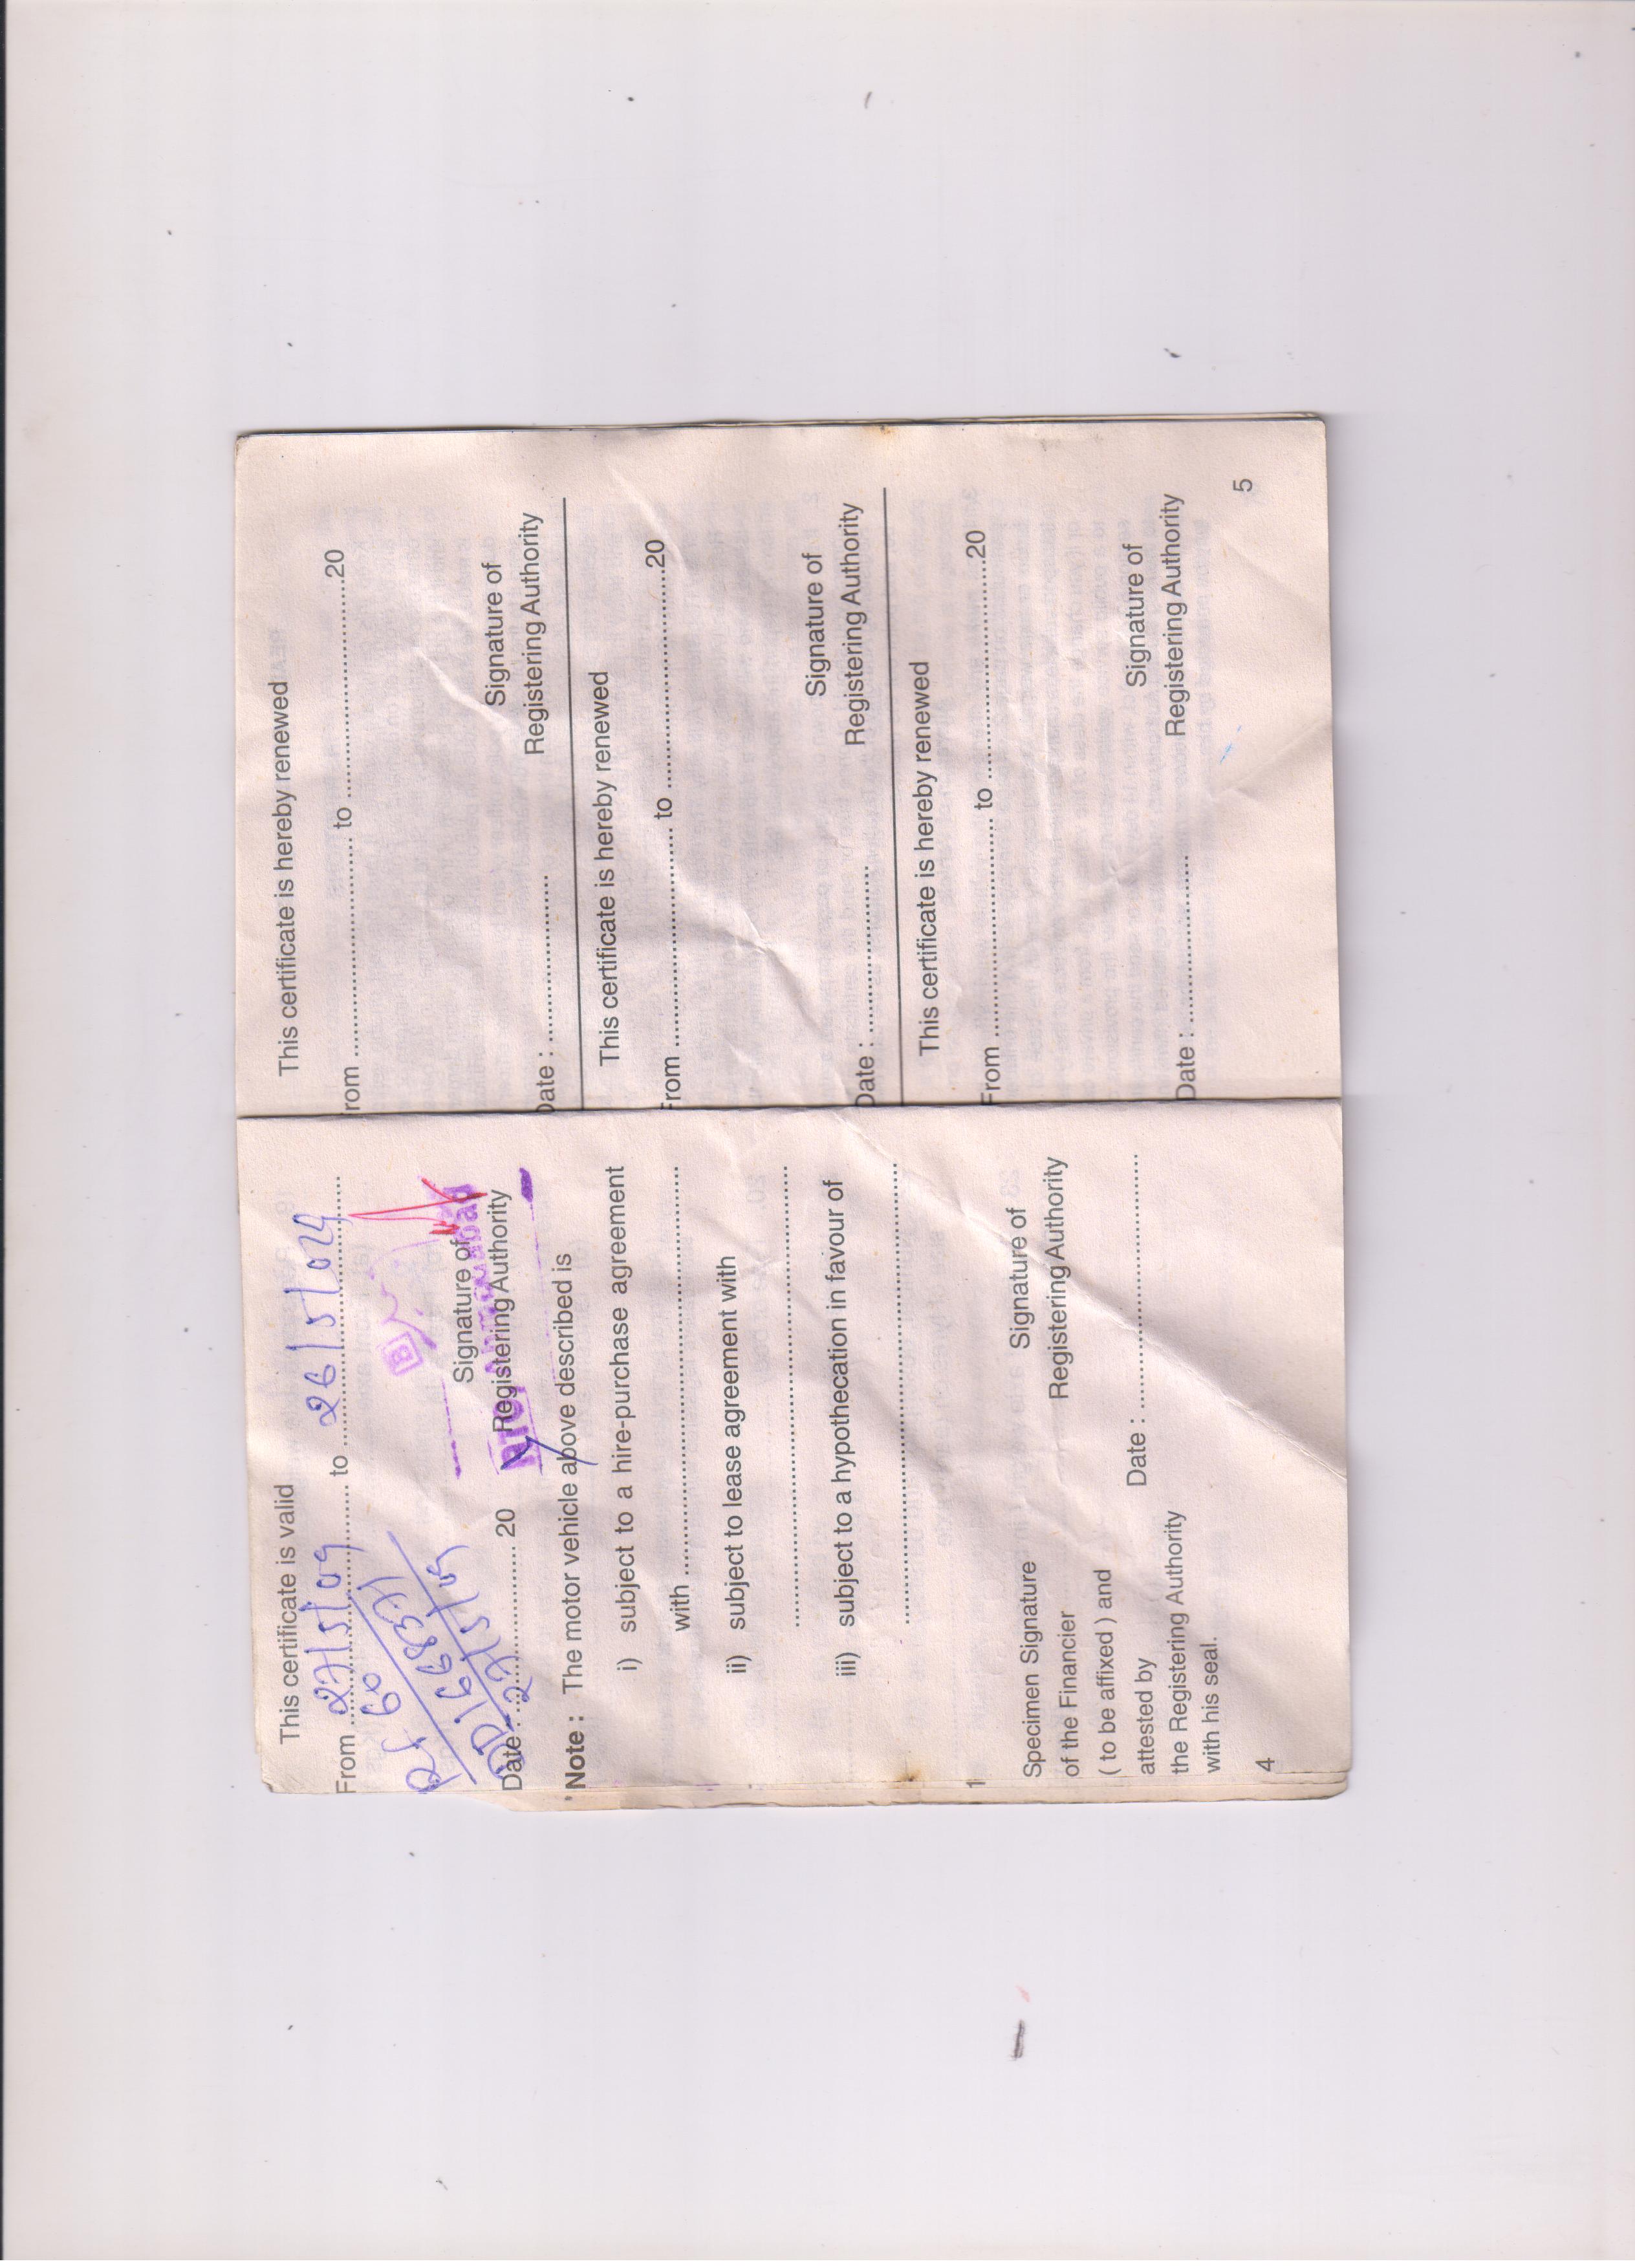 This certificate is valid
From 27/5/09 to 26/5/024
60
Signature of
Registering Authority
Date : 27/5/09 20
Note : The motor vehicle above described is
i) subject to a hire-purchase agreement
with
ii) subject to lease agreement with
iii) subject to a hypothecation in favour of
1
Specimen Signature
of the Financier
( to be affixed ) and
attested by
the Registering Authority
with his seal.
Signature of
Registering Authority
Date :
4
This certificate is hereby renewed
rom to 20
Signature of
Registering Authority
Date :
This certificate is hereby renewed
From to 20
Signature of
Registering Authority
Date :
This certificate is hereby renewed
From to 20
Signature of
Registering Authority
Date :
5